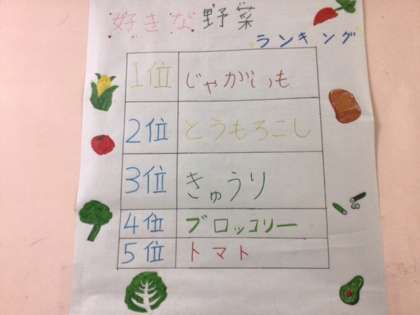 好きな野菜
ランキング
1位 じゃがいも
2位 とうもろこし
3位 きゅうり
4位 ブロッコリー
5位 トマト